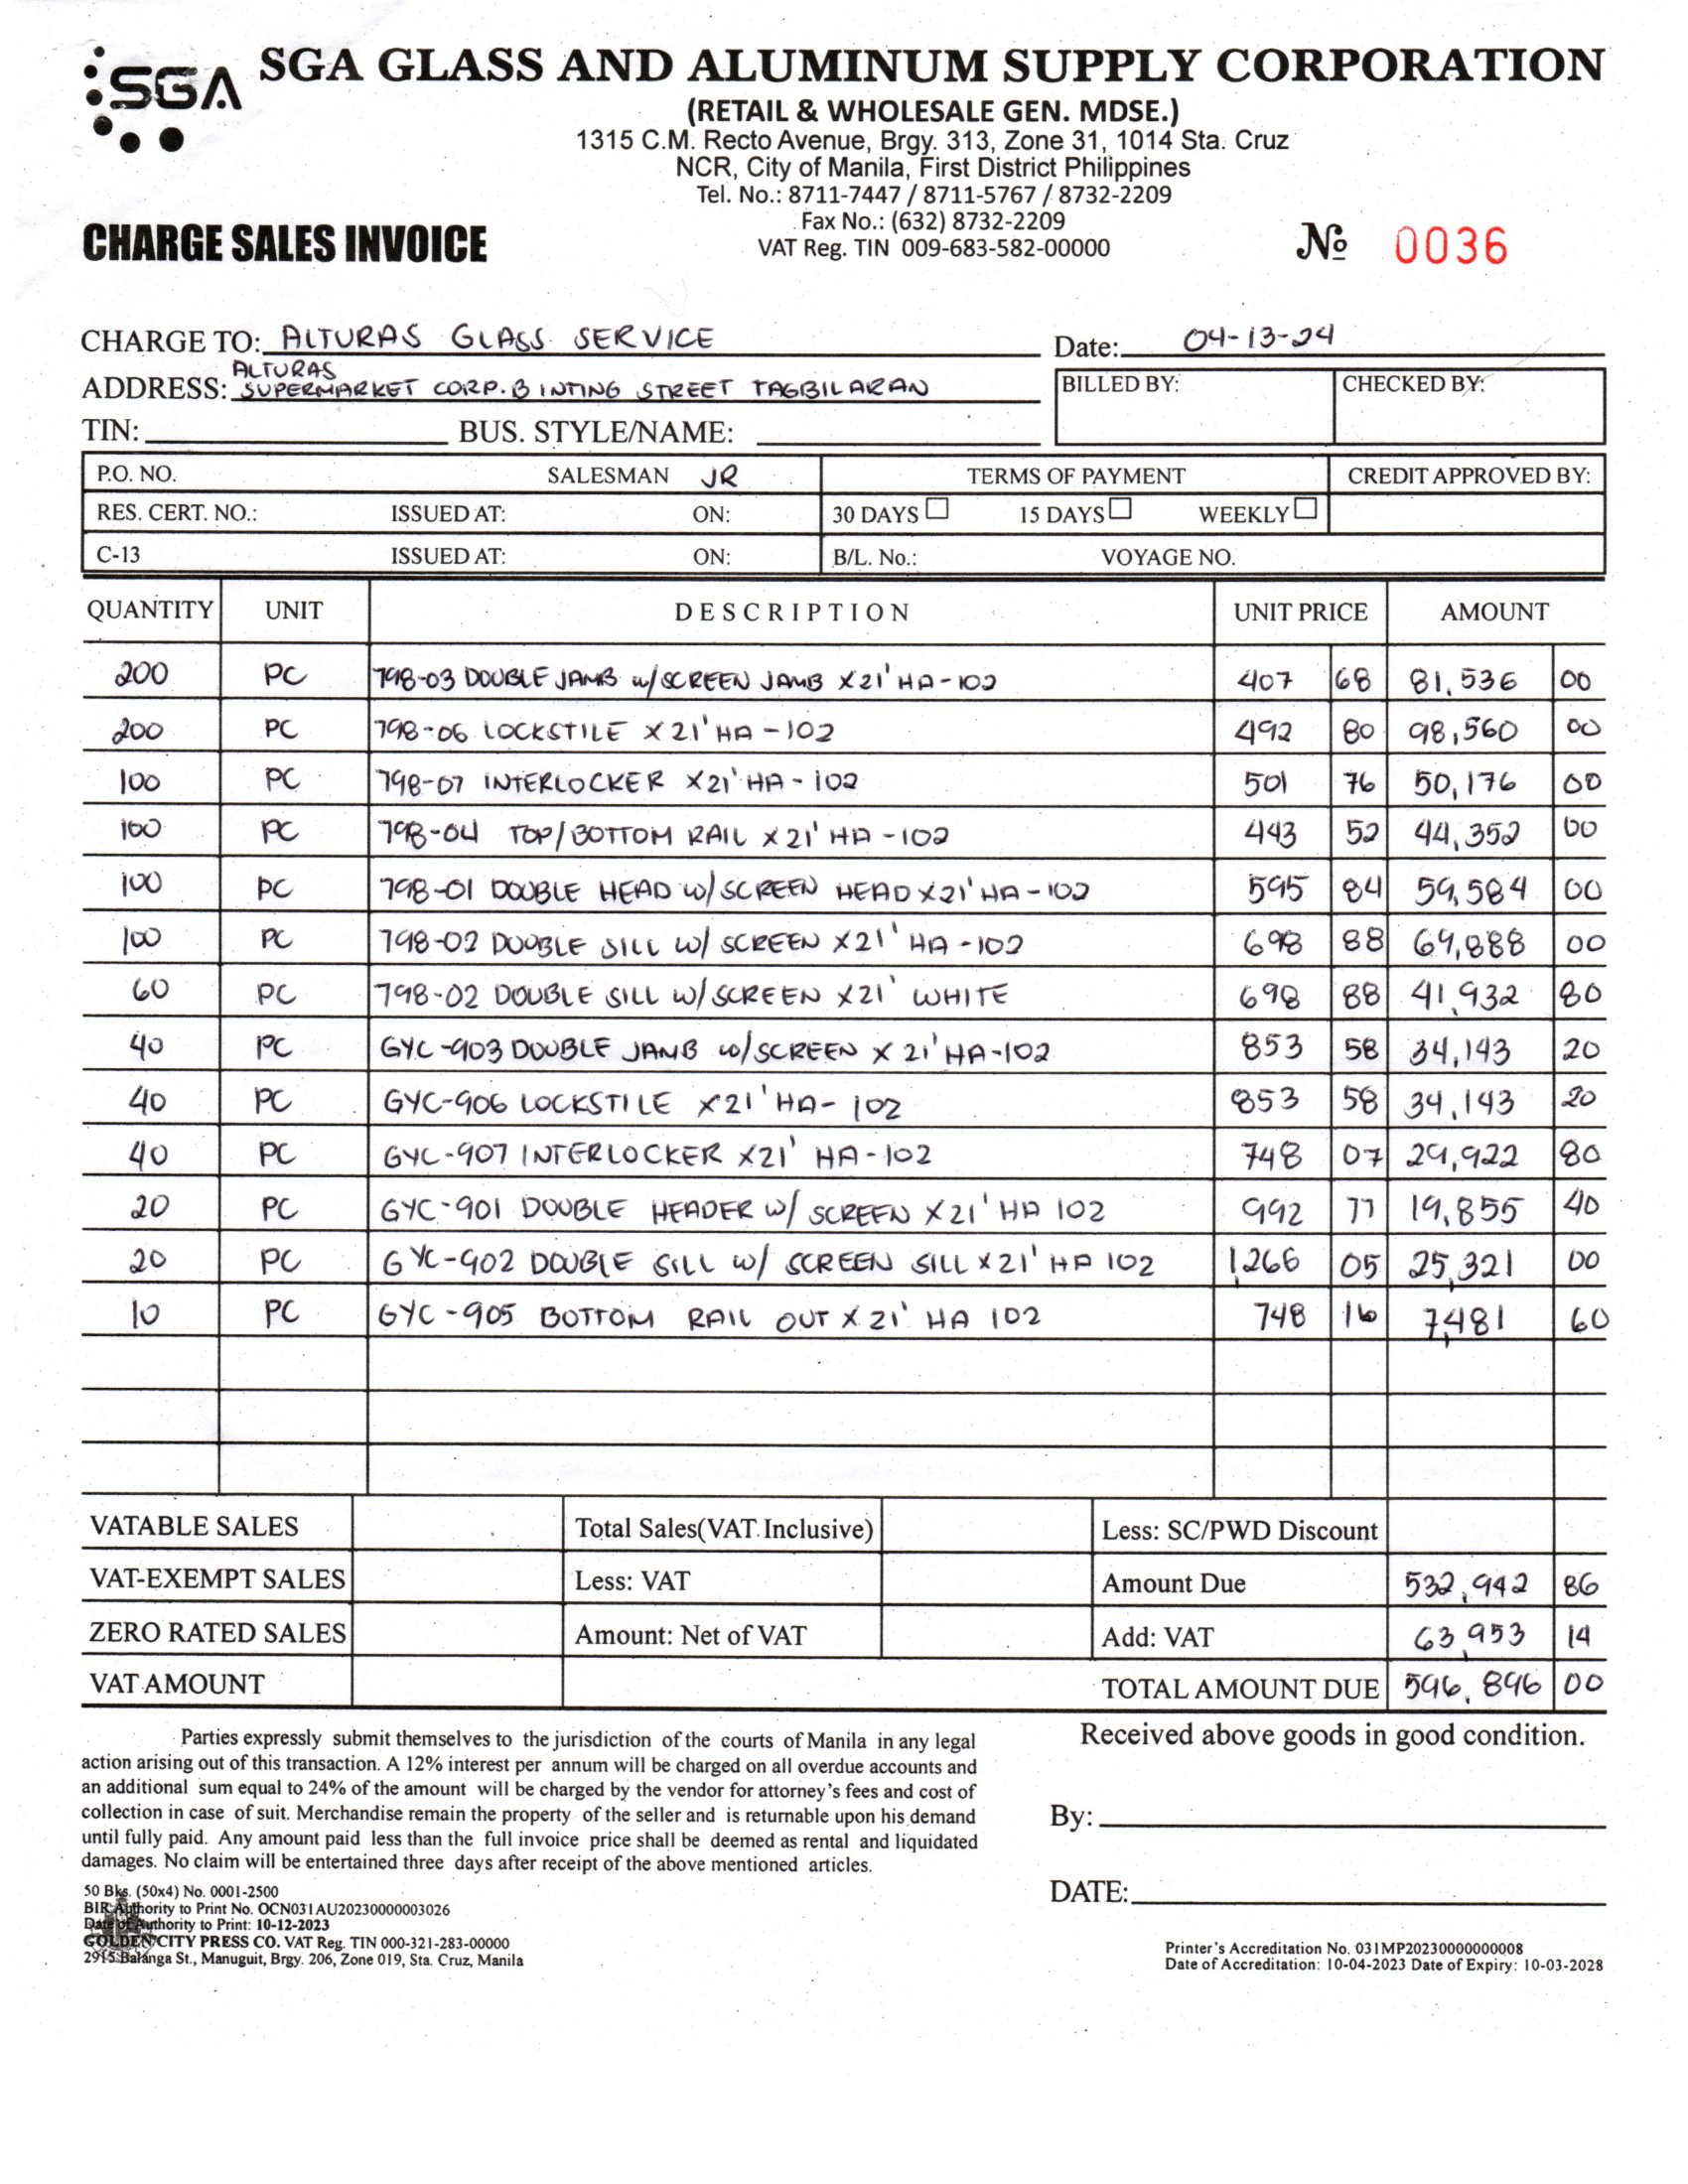 SGA
SGA GLASS AND ALUMINUM SUPPLY CORPORATION
(RETAIL & WHOLESALE GEN. MDSE.)
1315 C.M. Recto Avenue, Brgy. 313, Zone 31, 1014 Sta. Cruz
NCR, City of Manila, First District Philippines
Tel. No.: 8711-7447 / 8711-5767 / 8732-2209
Fax No.: (632) 8732-2209
VAT Reg. TIN 009-683-582-00000
CHARGE SALES INVOICE
№ 0036
CHARGE TO: ALTURAS GLASS SERVICE
Date: 04-13-24
ALTURAS
ADDRESS: SUPERMARKET CORP. B INTING STREET TAGBILARAN
BILLED BY: CHECKED BY:
TIN: BUS. STYLE/NAME:
P.O. NO. SALESMAN JR TERMS OF PAYMENT CREDIT APPROVED BY:
RES. CERT. NO.: ISSUED AT: ON: 30 DAYS 15 DAYS WEEKLY
C-13 ISSUED AT: ON: B/L. No.: VOYAGE NO.
QUANTITY UNIT DESCRIPTION UNIT PRICE AMOUNT
200 PC 798-03 DOUBLE JAMB w/SCREEN JAMB X21' HA-102 407 68 81,536 00
200 PC 798-06 LOCKSTILE X 21' HA-102 492 80 98,560 00
100 PC 798-07 INTERLOCKER X21' HA-102 501 76 50,176 00
100 PC 798-04 TOP/BOTTOM RAIL X21' HA-102 443 52 44,352 00
100 PC 798-01 DOUBLE HEAD W/SCREEN HEAD X21' HA-102 595 84 59,584 00
100 PC 798-02 DOUBLE SILL W/ SCREEN X21' HA-102 698 88 69,888 00
60 PC 798-02 DOUBLE SILL W/SCREEN X21' WHITE 698 88 41,932 80
40 PC GYC-903 DOUBLE JAMB W/SCREEN X 21' HA-102 853 58 34,143 20
40 PC GYC-906 LOCKSTILE X21' HA-102 853 58 34,143 20
40 PC GYC-907 INTERLOCKER X21' HA-102 748 07 29,922 80
20 PC GYC-901 DOUBLE HEADER W/ SCREEN X21' HA 102 992 77 19,855 40
20 PC GYC-902 DOUBLE SILL W/ SCREEN SILL X21' HA 102 1,266 05 25,321 00
10 PC GYC-905 BOTTOM RAIL OUT X 21' HA 102 748 16 7,481 60
VATABLE SALES Total Sales(VAT Inclusive) Less: SC/PWD Discount
VAT-EXEMPT SALES Less: VAT Amount Due 532,942 86
ZERO RATED SALES Amount: Net of VAT Add: VAT 63,953 14
VAT AMOUNT TOTAL AMOUNT DUE 596,896 00
Parties expressly submit themselves to the jurisdiction of the courts of Manila in any legal
action arising out of this transaction. A 12% interest per annum will be charged on all overdue accounts and
an additional sum equal to 24% of the amount will be charged by the vendor for attorney's fees and cost of
collection in case of suit. Merchandise remain the property of the seller and is returnable upon his demand
until fully paid. Any amount paid less than the full invoice price shall be deemed as rental and liquidated
damages. No claim will be entertained three days after receipt of the above mentioned articles.
Received above goods in good condition.
By:
DATE:
50 Bks. (50x4) No. 0001-2500
BIR Authority to Print No. OCN031AU20230000003026
Date of Authority to Print: 10-12-2023
GOLDEN CITY PRESS CO. VAT Reg. TIN 000-321-283-00000
2915 Balanga St., Manuguit, Brgy. 206, Zone 019, Sta. Cruz, Manila
Printer's Accreditation No. 031MP20230000000008
Date of Accreditation: 10-04-2023 Date of Expiry: 10-03-2028